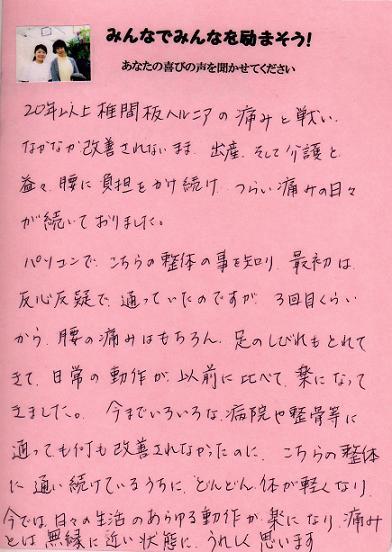 みんなでみんなを励まそう!
あなたの喜びの声を聞かせてください
20年以上椎間板ヘルニアの痛みと戦い、
なかなか改善されないまま、出産、そして介護と
益々、腰に負担をかけ続け、つらい痛みの日々
が続いておりました。
パソコンで、こちらの整体の事を知り、最初は、
反心反疑で、通っていたのですが、3回目くらい
から、腰の痛みはもちろん、足のしびれもとれて
きて、日常の動作が、以前に比べて、楽になって
きました。今までいろいろな、病院や整骨等に
通っても何も改善されなかったのに、こちらの整体
に通い続けているうちに、どんどん体が軽くなり、
今では、日々の生活のあらゆる動作が楽になり、痛み
とは無縁に近い状態に、うれしく思います